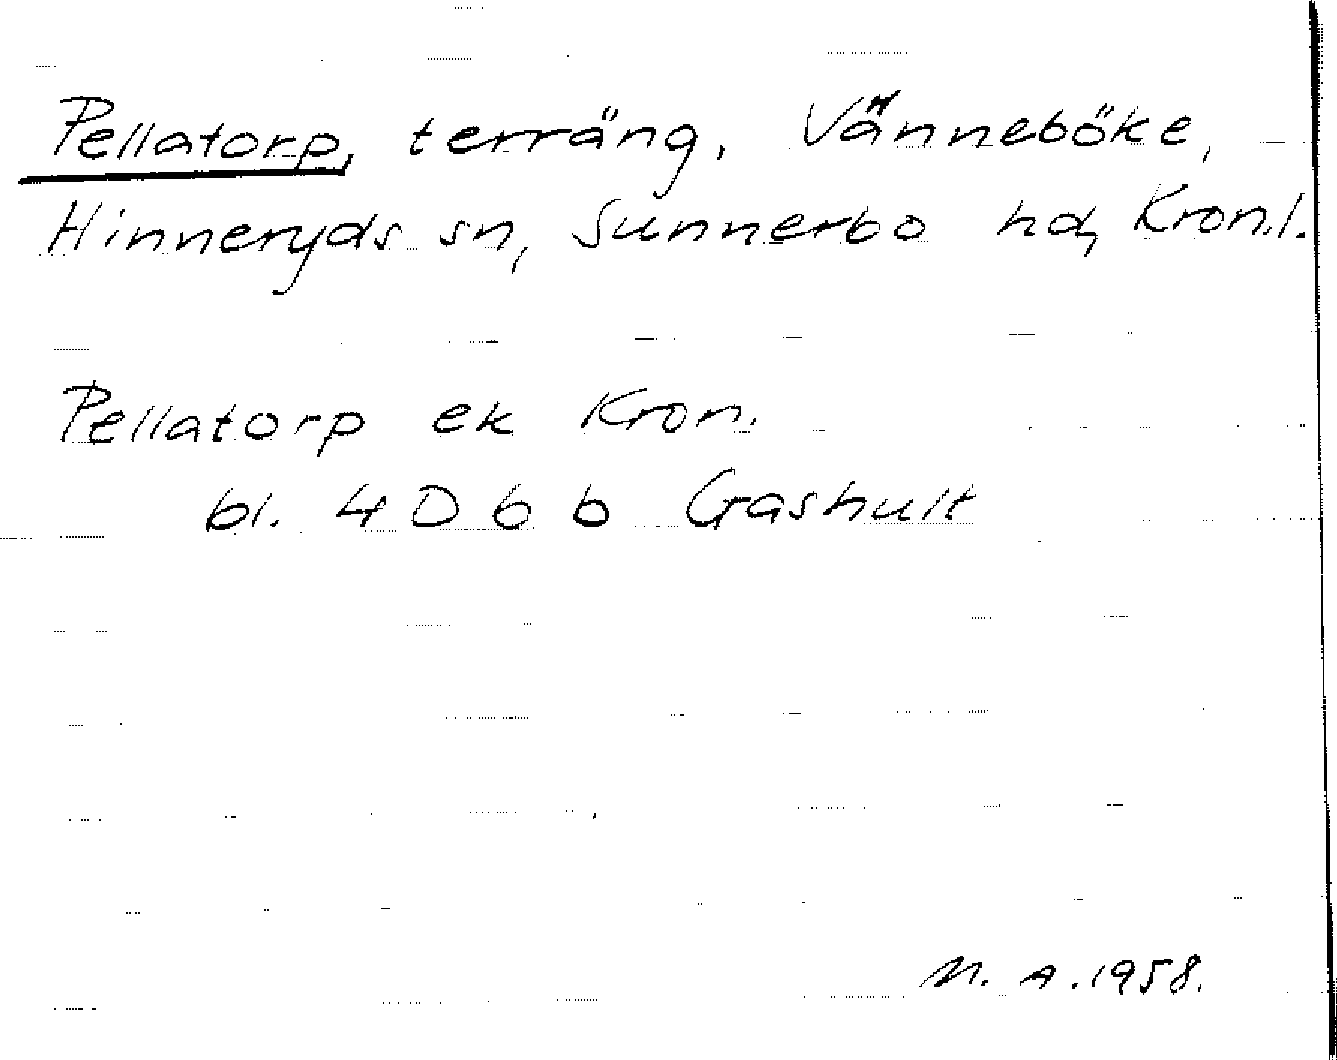 Pellatorp, terräng, Vänneböke,
Hinneryds sn, Sunnerbo hd, Kron.l.
Pellatorp ek Kron.
bl. 4 D 6 b Gashult
M. A. 1958.